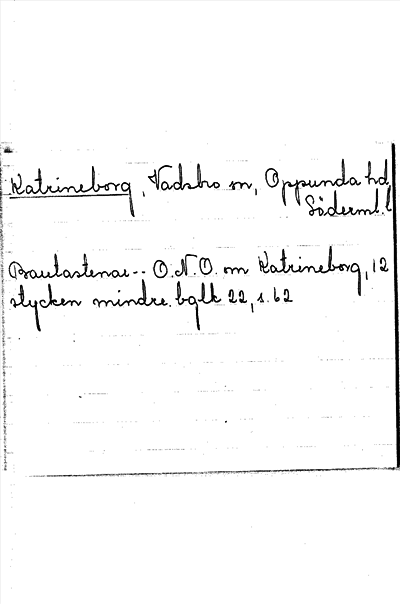 Katrineborg, Vadsbro sn, Oppunda hd,
Söderml. l
Bautastenar -- O.N.O. om Katrineborg, 12
stycken mindre. bglk 22, s. 62